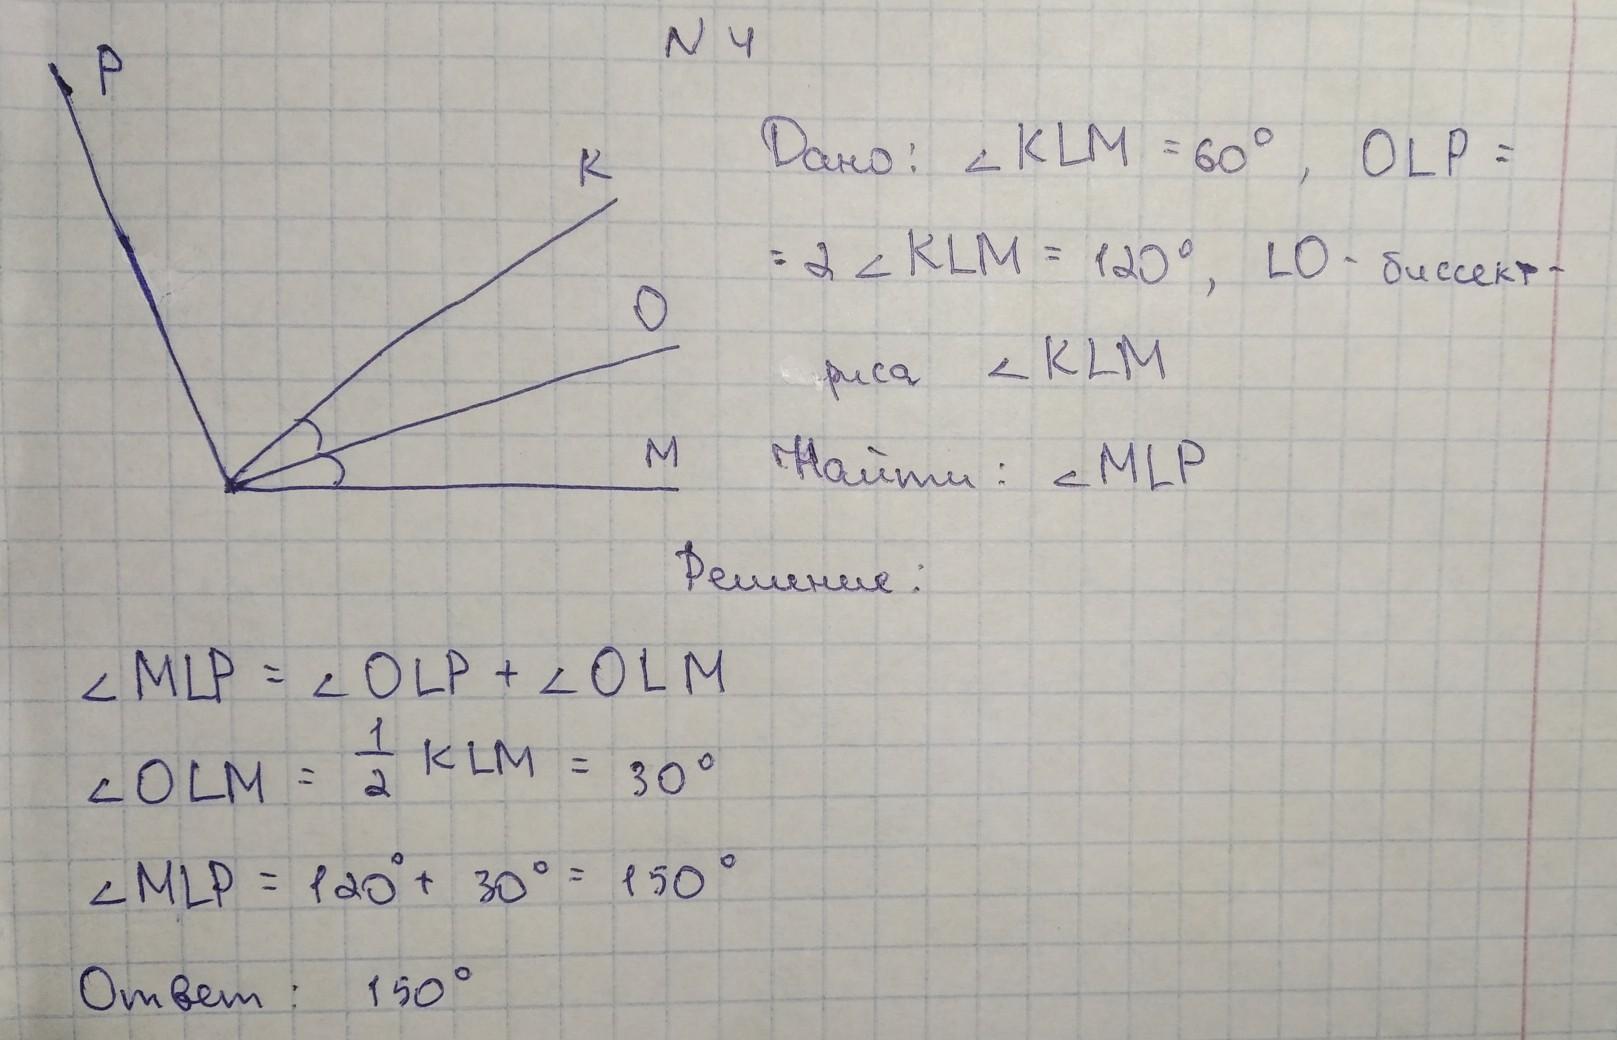 N 4
P
K
O
M
Дано: ∠KLM = 60°, OLP =
= 2 ∠KLM = 120°, LO - биссект-
риса ∠KLM
Найти: ∠MLP
Решение:
∠MLP = ∠OLP + ∠OLM
∠OLM = 1/2 KLM = 30°
∠MLP = 120° + 30° = 150°
Ответ: 150°